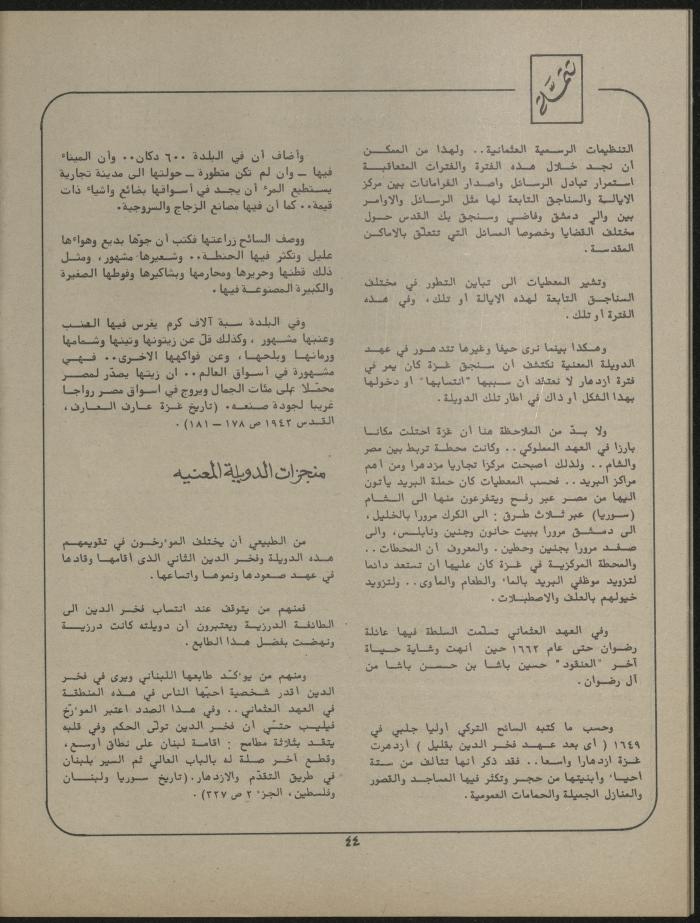 تتمة
التنظيمات الرسمية العثمانية.. ولهذا من الممكن
أن نجد خلال هذه الفترة والفترات المتعاقبة
استمرار تبادل الرسائل واصدار الفرامانات بين مركز
الايالة والسناجق التابعة لها مثل الرسائل والاوامر
بين والي دمشق وقاضي وسنجق بك القدس حول
مختلف القضايا وخصوصا المسائل التي تتعلق بالاماكن
المقدسة.
وتشير المعطيات الى تباين التطور في مختلف
السناجق التابعة لهذه الايالة أو تلك، وفي هذه
الفترة أو تلك.
وهكذا بينما نرى حيفا وغيرها تتدهور في عهد
الدويلة المعنية نكتشف أن سنجق غزة كان يمر في
فترة ازدهار لا نعتقد أن سببها "انتسابها" أو دخولها
بهذا الشكل أو ذاك في اطار تلك الدويلة.
ولا بدّ من الملاحظة هنا أن غزة احتلت مكانا
بارزا في العهد المملوكي.. وكانت محطة تربط بين مصر
والشام.. ولذلك أصبحت مركزا تجاريا مزدهرا ومن أهم
مراكز البريد.. فحسب المعطيات كان حملة البريد يأتون
اليها من مصر عبر رفح ويتفرعون منها الى الشام
(سوريا) عبر ثلاث طرق: الى الكرك مرورا بالخليل،
الى دمشق مرورا ببيت حانون وجنين ونابلس، والى
صفد مرورا بجنين وحطين. والمعروف أن المحطات..
والمحطة المركزية في غزة كان عليها أن تستعد دائما
لتزويد موظفي البريد بالماء والطعام والمأوى.. ولتزويد
خيولهم بالعلف والاصطبلات.
وفي العهد العثماني تسلّمت السلطة فيها عائلة
رضوان حتى عام ١٦٦٢ حين أنهت وشاية حياة
آخر "العنقود" حسين باشا بن حسن باشا من
آل رضوان.
وحسب ما كتبه السائح التركي أوليا جلبي في
١٦٤٩ (أى بعد عهد فخر الدين بقليل) ازدهرت
غزة ازدهارا واسعا.. فقد ذكر أنها تتألف من ستة
أحياء وأبنيتها من حجر وتكثر فيها المساجد والقصور
والمنازل الجميلة والحمامات العمومية.
وأضاف أن في البلدة ٦٠٠ دكان.. وأن الميناء
فيها ـ وان لم تكن متطورة ـ حولتها الى مدينة تجارية
يستطيع المرء أن يجد في أسواقها بضائع واشياء ذات
قيمة.. كما أن فيها مصانع الزجاج والسروجية.
ووصف السائح زراعتها فكتب أن جوّها بديع وهواءها
عليل وتكثر فيها الحنطة.. وشعيرها مشهور، ومثل
ذلك قطنها وحريرها ومحارمها وبشاكيرها وفوطها الصغيرة
والكبيرة المصنوعة فيها.
وفي البلدة سبة آلاف كرم يغرس فيها العنب
وعنبها مشهور، وكذلك قلّ عن زيتونها وتينها وشمامها
ورمانها وبلحها، وعن فواكهها الاخرى.. فهي
مشهورة في أسواق العالم.. ان زيتها يصدّر لمصر
محمّلا على مئات الجمال ويروج في اسواق مصر رواجا
غريبا لجودة صنعه. (تاريخ غزة عارف العارف،
القدس ١٩٤٢ ص ١٧٨ ـ ١٨١).
منجزات الدويلة المعنيه
من الطبيعي أن يختلف الموءرخون في تقويمهم
هذه الدويلة وفخر الدين الثاني الذى أقامها وقادها
في عهد صعودها ونموها واتساعها.
فمنهم من يتوقف عند انتساب فخر الدين الى
الطائفة الدرزية ويعتبرون أن دويلته كانت درزية
ونهضت بفضل هذا الطابع.
ومنهم من يوءكّد طابعها اللبناني ويرى في فخر
الدين أقدر شخصية أحبّها الناس في هذه المنطقة
في العهد العثماني.. وفي هذا الصدد اعتبر الموءرّخ
فيليب حتّي أن فخر الدين تولّى الحكم وفي قلبه
يتقد بثلاثة مطامح: اقامة لبنان على نطاق أوسع،
وقطع آخر صلة له بالباب العالي ثم السير بلبنان
في طريق التقدّم والازدهار. (تاريخ سوريا ولبنان
وفلسطين، الجزء ٢ ص ٣٢٧).
٤٤